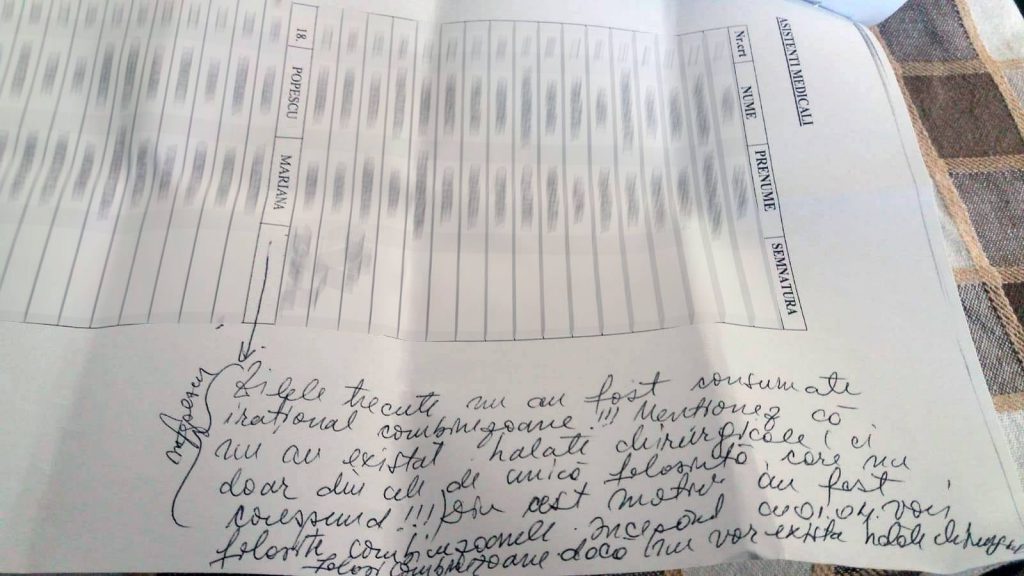 ASISTENTI MEDICALI
Nr.crt NUME PRENUME SEMNATURA
18 POPESCU MARIANA
Zilele trecute nu au fost consumate
irațional combinezoane!!! Menționez că
nu au existat halate chirurgicale, ci
doar din cele de unică folosință, care nu
corespund!!! Din acest motiv au fost
folosite combinezoanele. Începând cu voi
folosi combinezoane dacă nu vor exista halate